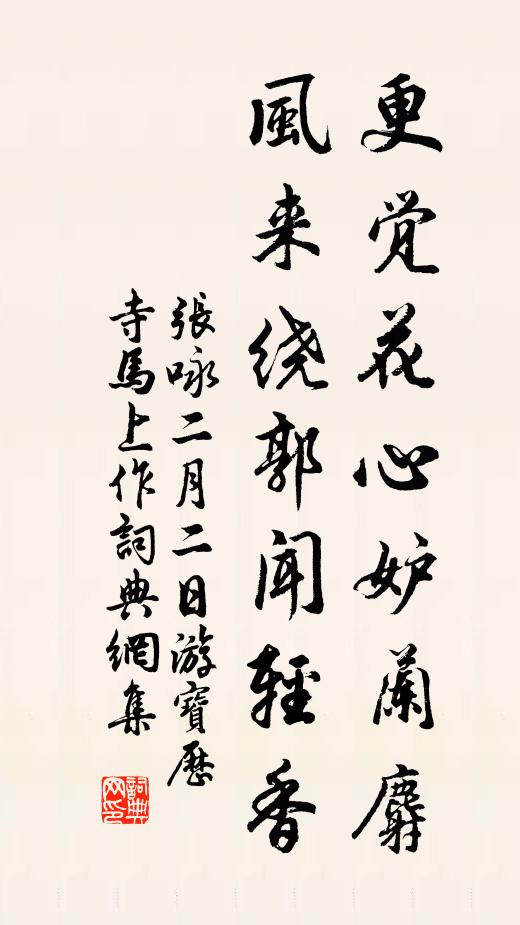 更觉花心妒蘭麝
風来绕郭闻輕香
張咏二月二日游寶歷
寺馬上作詞典網集
詞典网印